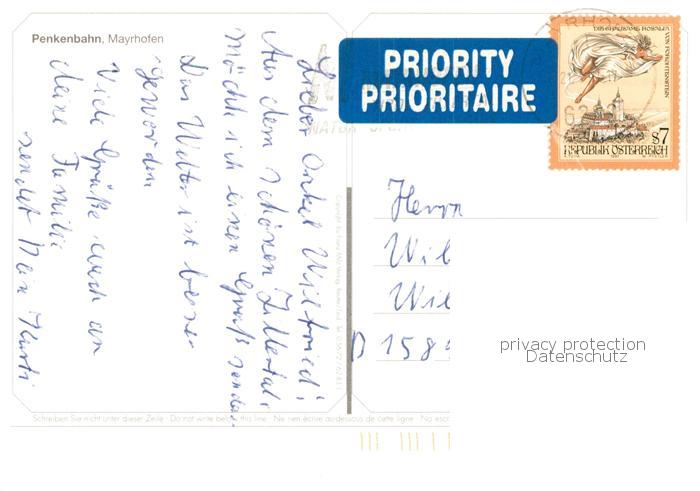 Penkenbahn, Mayrhofen
Lieber Onkel Wilfried!
Aus dem schönen Zillertal
möcht ich einen Gruß senden
Das Wetter ist besser
geworden
Viele Grüße auch an
deine Familie
sendet Dein
PRIORITY
PRIORITAIRE
VON FORCHTENSTEIN
s7
REPUBLIK ÖSTERREICH
Herrn
Wil
Wil
D 158
privacy protection
Datenschutz
Schreiben Sie nicht unter dieser Zeile · Do not write below this line · Ne rien écrire au-dessous de cette ligne · Na esch